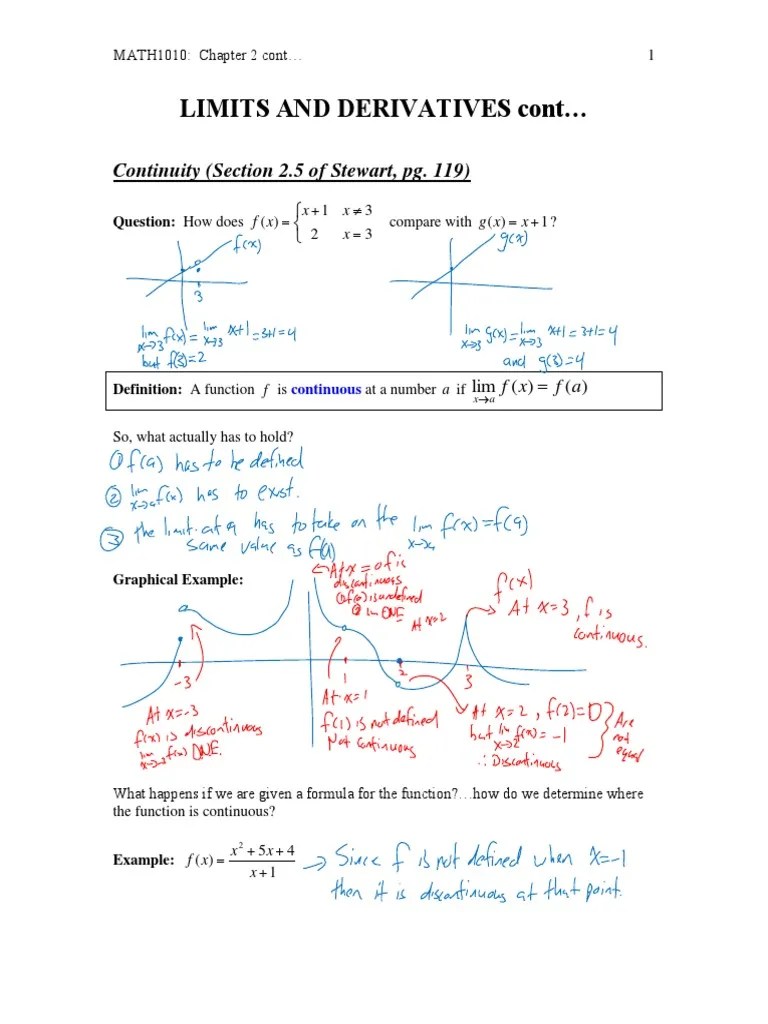 MATH1010: Chapter 2 cont…
1
LIMITS AND DERIVATIVES cont…
Continuity (Section 2.5 of Stewart, pg. 119)
Question: How does f(x) = { x+1 x≠3
2 x=3
compare with g(x) = x+1?
f(x)
3
lim x→3 f(x) = lim x→3 x+1 = 3+1 = 4
but f(3) = 2
g(x)
lim x→3 g(x) = lim x→3 x+1 = 3+1 = 4
and g(3) = 4
Definition: A function f is continuous at a number a if lim x→a f(x) = f(a)
So, what actually has to hold?
① f(a) has to be defined
② lim x→a f(x) has to exist.
③ the limit at a has to take on the
same value as f(a)
lim f(x) = f(a)
Graphical Example:
← At x=0 f is
discontinuous
① f(0) is undefined
② lim DNE
At x=2
f(x)
At x=3, f is
continuous.
-3
1
2
3
At x=-3
f(x) is discontinuous
lim f(x) DNE.
At x=1
f(1) is not defined
Not continuous
At x=2, f(2)=0
but lim x→2 f(x) = -1
∴ Discontinuous
Are
not
equal
What happens if we are given a formula for the function?…how do we determine where
the function is continuous?
Example: f(x) = (x² + 5x + 4)/(x+1)
→ Since f is not defined when x=-1
then it is discontinuous at that point.